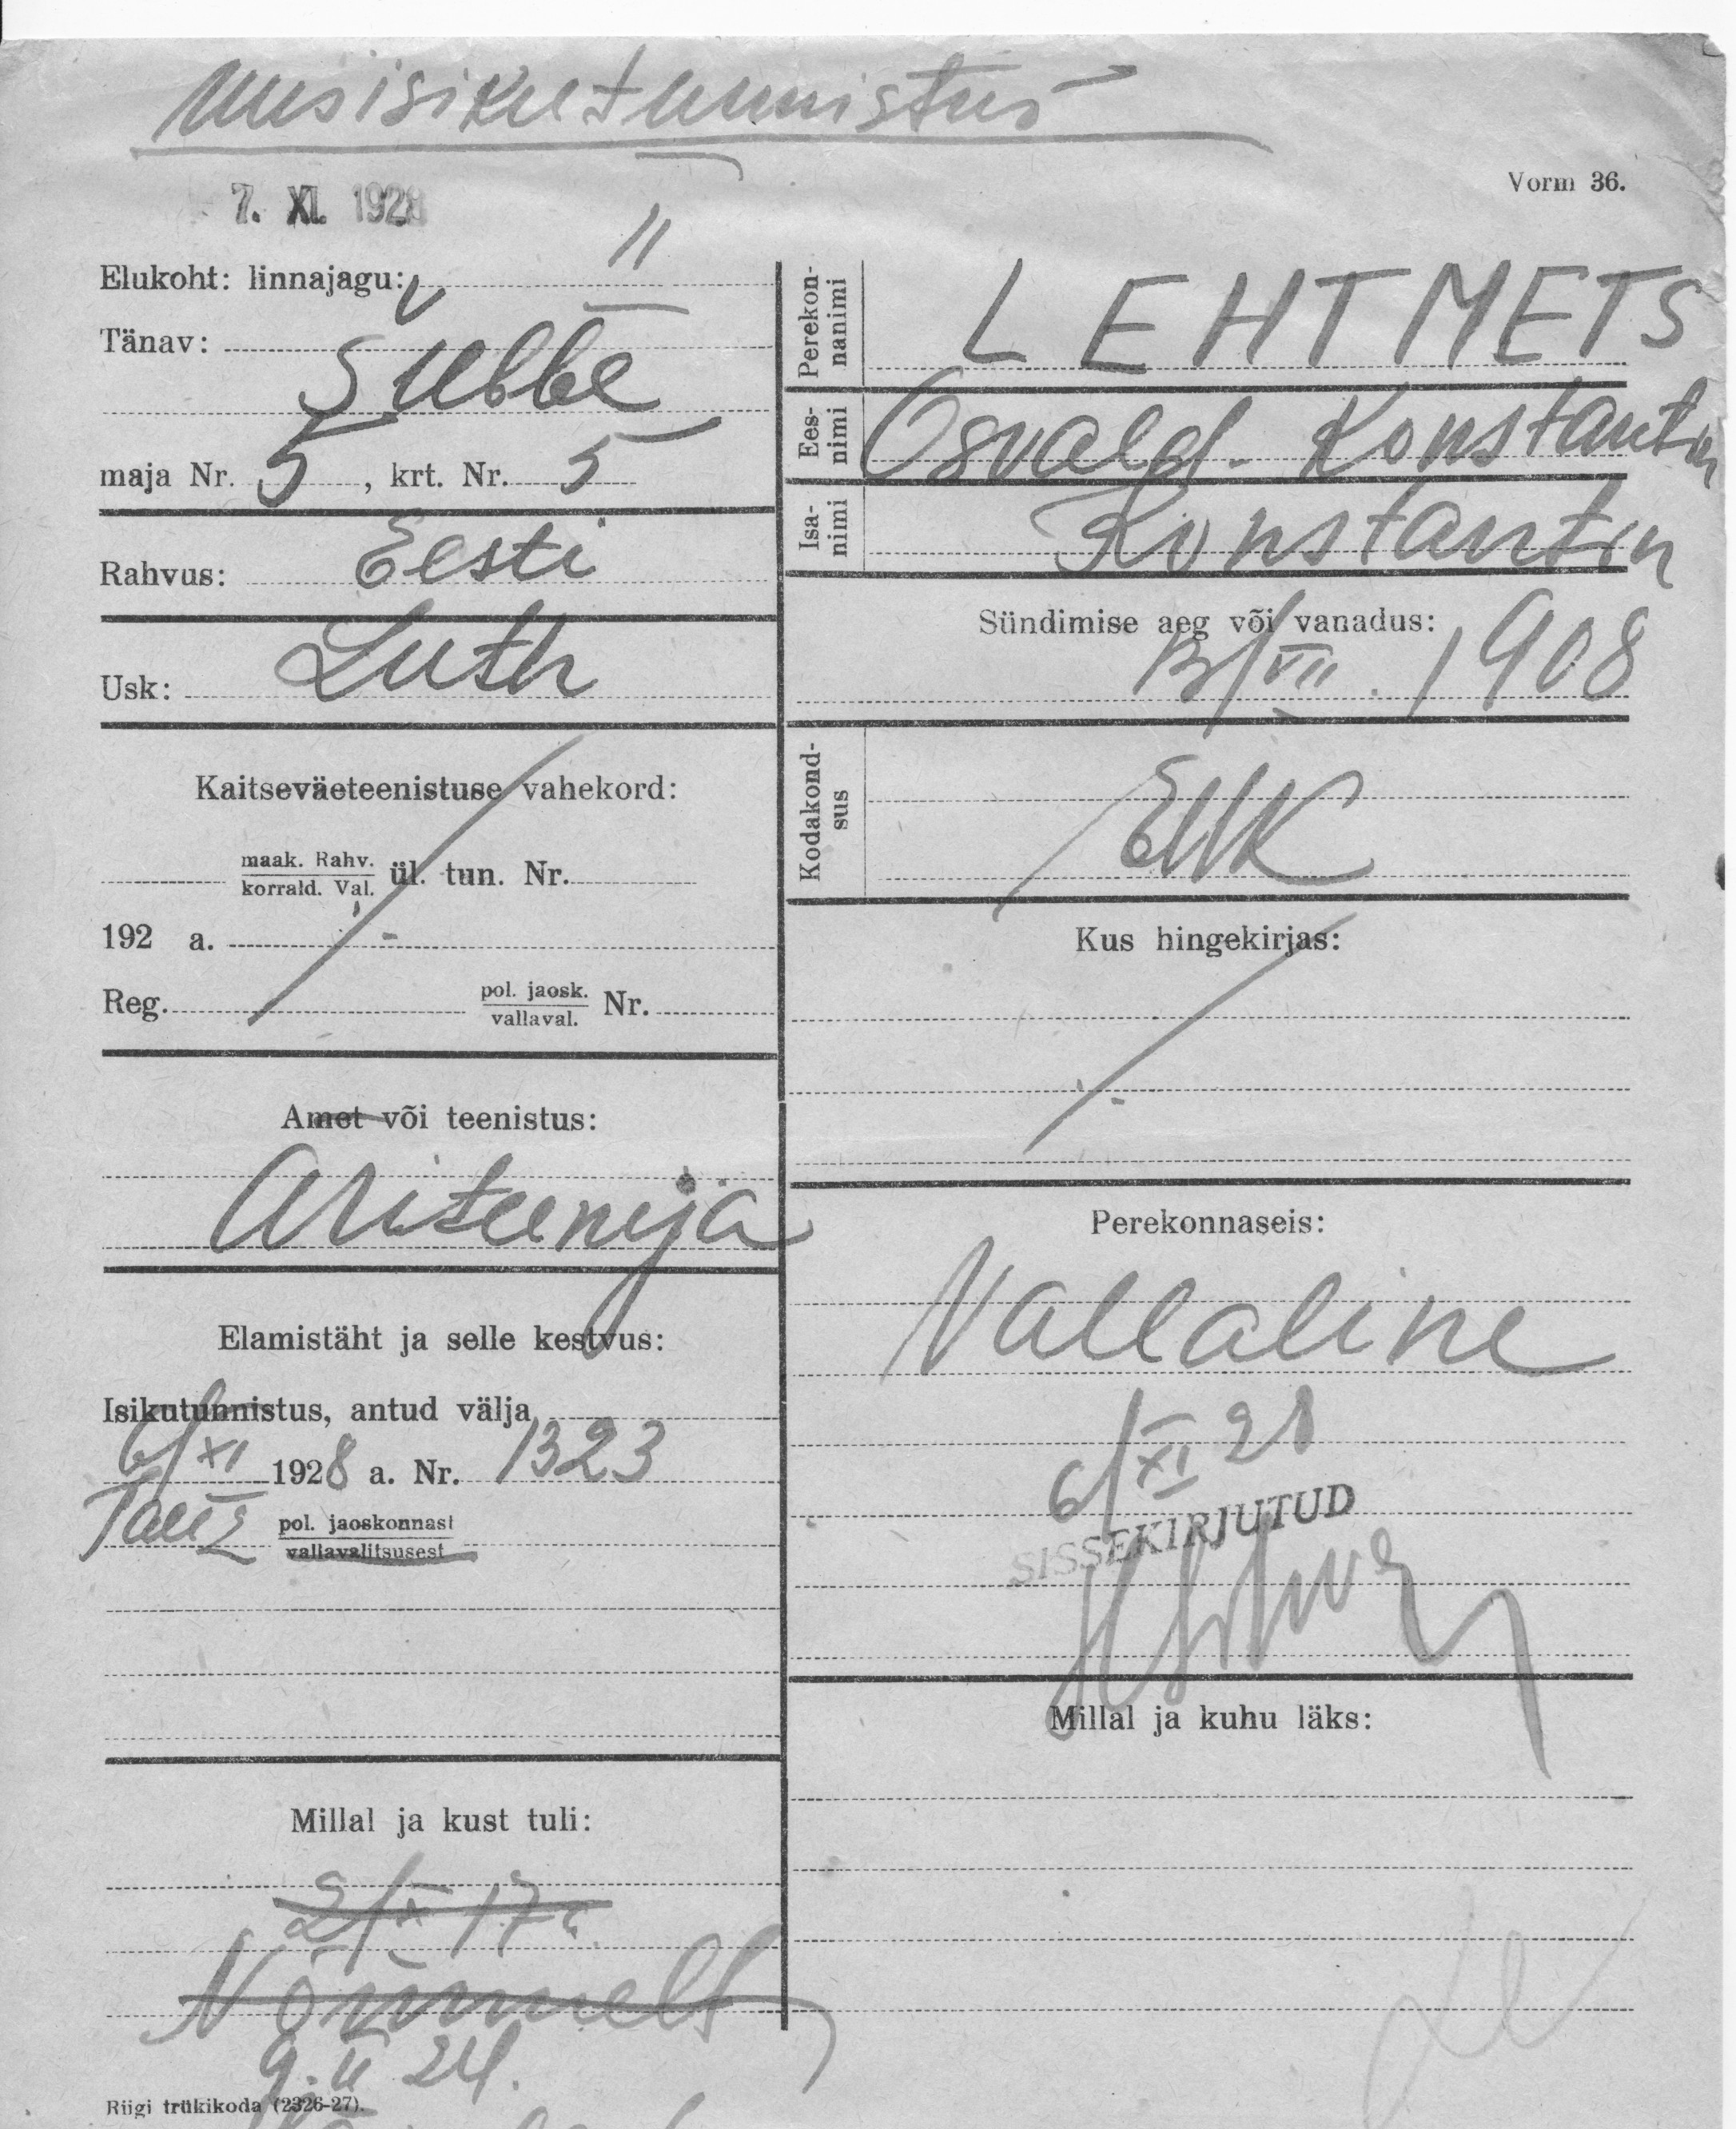 Uus isikutunnistus
7. XI. 1928
Vorm 36.
Elukoht: linnajagu: II
Tänav:
Sübbe
maja Nr. 5, krt. Nr. 5
Rahvus: Eesti
Usk: Luth
Kaitseväeteenistuse vahekord:
maak. Rahv.
korrald. Val. ül. tun. Nr.
192 a.
Reg. pol. jaosk.
vallaval. Nr.
Amet või teenistus:
Äriteenija
Elamistäht ja selle kestvus:
Isikutunnistus, antud välja
6/XI 1928 a. Nr. 1323
Tall 2 pol. jaoskonnast
vallavalitsusest
Millal ja kust tuli:
2/X 17 a.
Nõmmelt
9. II 24.
Riigi trükikoda (2326-27).
Perekonnanimi
LEHTMETS
Eesnimi
Osvald-Konstantin
Isanimi
Konstantin
Sündimise aeg või vanadus:
13/VII. 1908
Kodakondsus
EWK
Kus hingekirjas:
Perekonnaseis:
Vallaline
6/XI 28
SISSEKIRJUTUD
Millal ja kuhu läks: